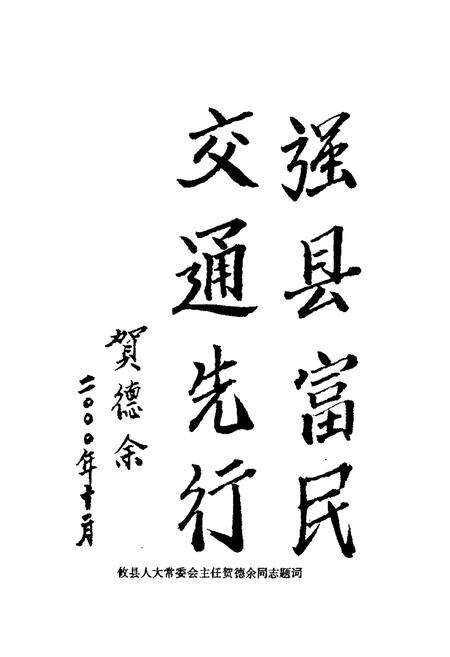 强县富民
交通先行
賀德余
二〇〇〇年十一月
攸县人大常委会主任贺德余同志题词